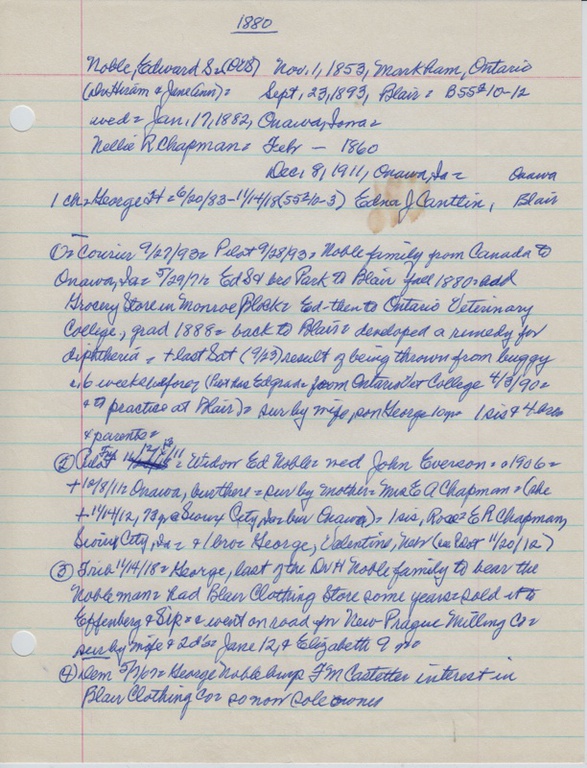 1880
Noble, Edward S. (DVS) Nov. 1, 1853, Markham, Ontario
(Dr Hiram & Jane Ann) = Sept, 23, 1893, Blair = B5510-12
wed = Jan, 17, 1882, Onawa, Iowa =
Nellie R Chapman = Febr — 1860
Dec, 8, 1911, Onawa, Ia = Onawa
1 ch = George H = 6/20/83 - 11/14/18 (5510-3) Edna J Cantlin, Blair
① = Courier 9/27/93 = Pilot 9/28/93 = Noble family from Canada to
Onawa, Ia = 5/29/71 = Ed S & bro Park to Blair fall 1880 = add
Grocery Store in Monroe Block = Ed then to Ontario Veterinary
College, grad 1888 = back to Blair = developed a remedy for
diphtheria = + last Sat (9/23) result of being thrown from buggy
6 weeks before, (Pilot has Ed grad from Ontario Vet College 4/3/90 =
& to practise at Blair) = sur by wife, son George 10yr = 1 sis & 4 bros
& parents =
② Pilot = Widow Ed Noble = wed John Everson = 1906 =
+ 12/8/11 = Onawa, bur there = sur by mother = Mrs E A Chapman = (she
+ 11/14/12, 73y, @ Sioux City, Ia = bur Onawa) = 1 sis, Rose = E R Chapman,
Sioux City, Ia = & 1 bro = George, Valentine, Neb (see Pilot 11/20/12)
③ Trib 11/14/18 = George, last of the Dr H Noble family to bear the
Noble name = Had Blair Clothing Store some years = sold it to
Effenberg & Sip = & went on road for New Prague Milling Co =
sur by wife & 2 ds = Jane 12, & Elizabeth 9 mo
④ Dem = George Noble buys F M Castetter interest in
Blair Clothing Co = so now sole owner